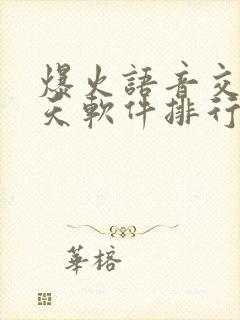 爆火語音交
天軟件排行
華榕